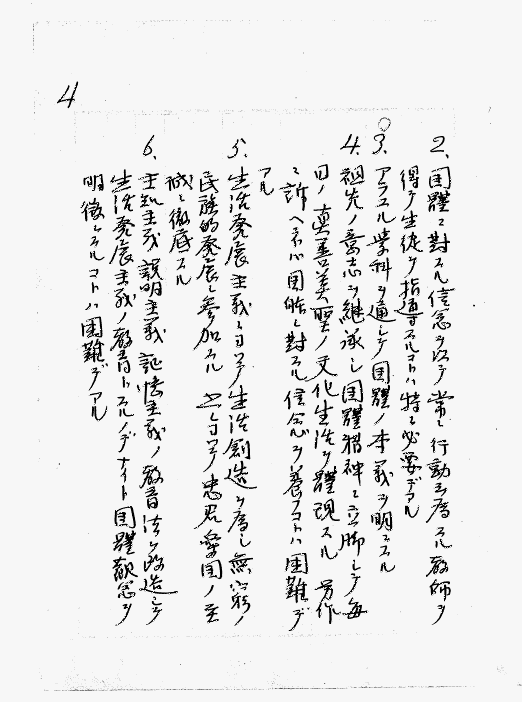 4
2. 国體ニ對スル信念ヲ以テ常ニ行動シ居ル教師ヲ
得テ生徒ヲ指導スルコトハ特ニ必要デアル
3. アラユル学科ヲ通シテ国體ノ本義ヲ明ニスル
4. 祖先ノ意志ヲ継承シ国體精神ニ立脚シテ毎
日ノ真善美聖ノ文化生活ヲ體現スル 労作
ニ訴ヘネバ国体ニ對スル信念ヲ養フコトハ困難デ
アル
5. 生活発展主義ニヨリテ生活創造ヲ為シ無窮ノ
民族的発展ニ参加スル 之ニヨリテ忠君愛国ノ至
誠ニ徹底スル
6. 主知主義 説明主義 記憶主義ノ教育法ヲ改造シテ
生活発展主義ノ教育トスルノデナイト国體観念ヲ
明徴ニスルコトハ困難デアル